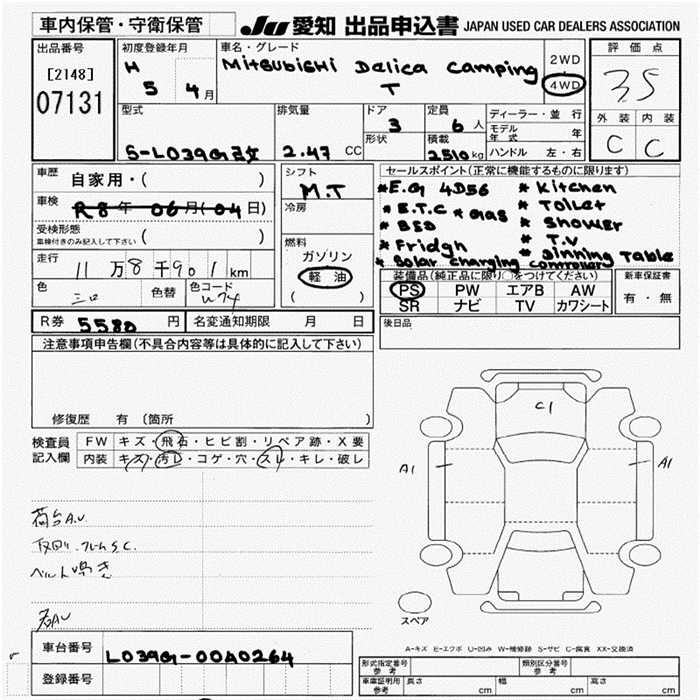 車内保管・守衛保管
JU 愛知 出品申込書 JAPAN USED CAR DEALERS ASSOCIATION
出品番号
[2148]
07131
初度登録年月
H 5 4月
車名・グレード
Mitsubishi Delica Camping
T
2WD
4WD
評価点
3.5
外装 内装
C C
型式
S-L039G改
排気量
2.47 CC
ドア
3
形状
定員
6人
積載
2510kg
ディーラー・並行
モデル年式 年
ハンドル 左・右
車歴 自家用・( )
車検 R8年 06月(04日)
受検形態
車検付きのみ記入して下さい ( )
走行
11万8千901km
色 色替 色コード
シフト
M.T
冷房
燃料
ガソリン
軽油
( )
セールスポイント(正常に機能するものに限ります)
*E.G 4D56 * Kitchen
*E.T.C * Gas * Toilet
* BSD * Shower
* Fridgh * T.V
* Solar charging controller * Dinning Table
装備品(純正品に限り○をつけてください)
PS PW エアB AW
SR ナビ TV カワシート
新車保証書
有・無
後日品
R券 5580円 名変通知期限 月 日
注意事項申告欄(不具合内容等は具体的に記入して下さい)
修復歴 有 (箇所 )
検査員
記入欄
FW キズ・飛石・ヒビ割・リペア跡・X要
内装 キズ・汚レ・コゲ・穴・スレ・キレ・破レ
荷台AU
下回り.フレームSC.
ベルト鳴き
C1
A1
A1
スペア
A-キズ E-エクボ U-凹み W-補修跡 S-サビ C-腐食 XX-交換済
車台番号 L039G-00A0264
登録番号
形式指定番号 参考
類別区分番号 参考
車庫証明用 参考 長さ cm 幅 cm 高さ cm